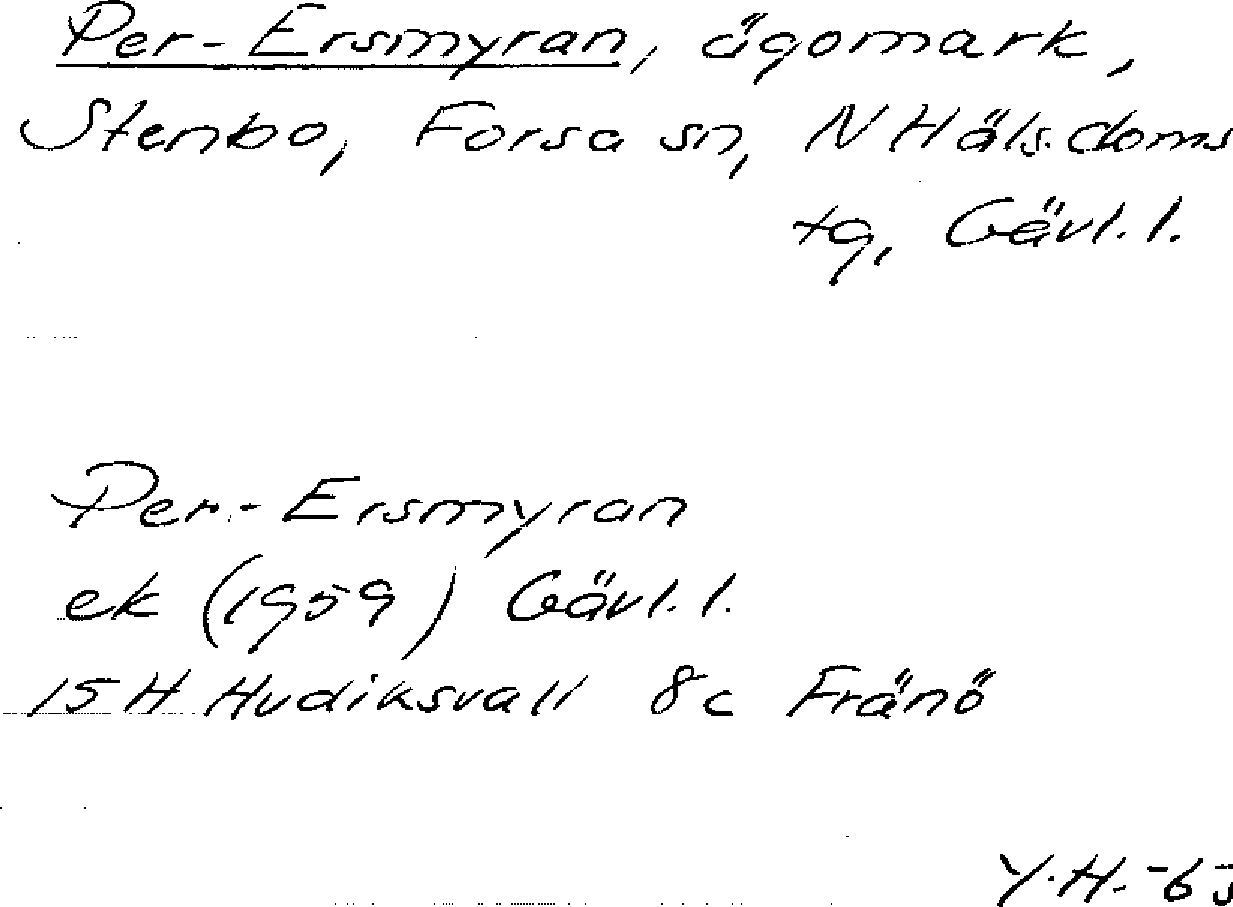 Per-Ersmyran, ägomark,
Stenbo, Forsa sn, N Häls. doms
tg, Gävl. l.
Per-Ersmyran
ek (1959) Gävl. l.
15 H Hudiksvall 8c Fränö
Y.H.